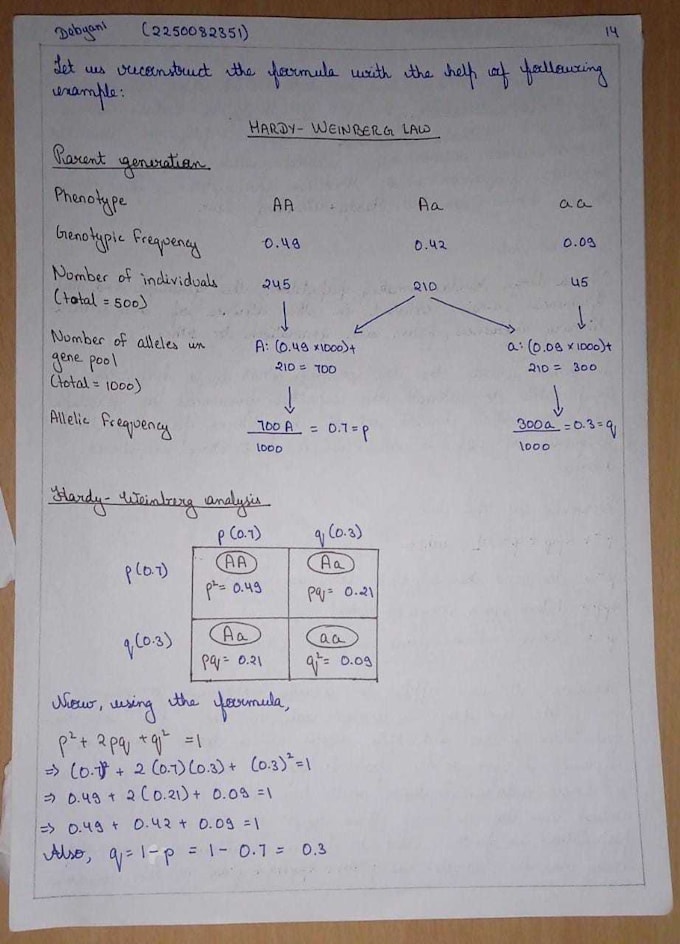 Debyani (2250082351) 14
Let us reconstruct the formula with the help of following
example:
HARDY-WEINBERG LAW
Parent generation
Phenotype AA Aa aa
Genotypic Frequency 0.49 0.42 0.09
Number of individuals 245 210 45
(total = 500)
Number of alleles in A: (0.49 x1000)+ a: (0.09 x1000)+
gene pool 210 = 700 210 = 300
(total = 1000)
Allelic Frequency 700 A / 1000 = 0.7 = p 300a / 1000 = 0.3 = q
Hardy-Weinberg analysis
p (0.7) q (0.3)
p (0.7) AA Aa
p² = 0.49 pq = 0.21
q (0.3) Aa aa
pq = 0.21 q² = 0.09
Now, using the formula,
p² + 2pq + q² = 1
⇒ (0.7)² + 2 (0.7) (0.3) + (0.3)² = 1
⇒ 0.49 + 2 (0.21) + 0.09 = 1
⇒ 0.49 + 0.42 + 0.09 = 1
Also, q = 1 - p = 1 - 0.7 = 0.3